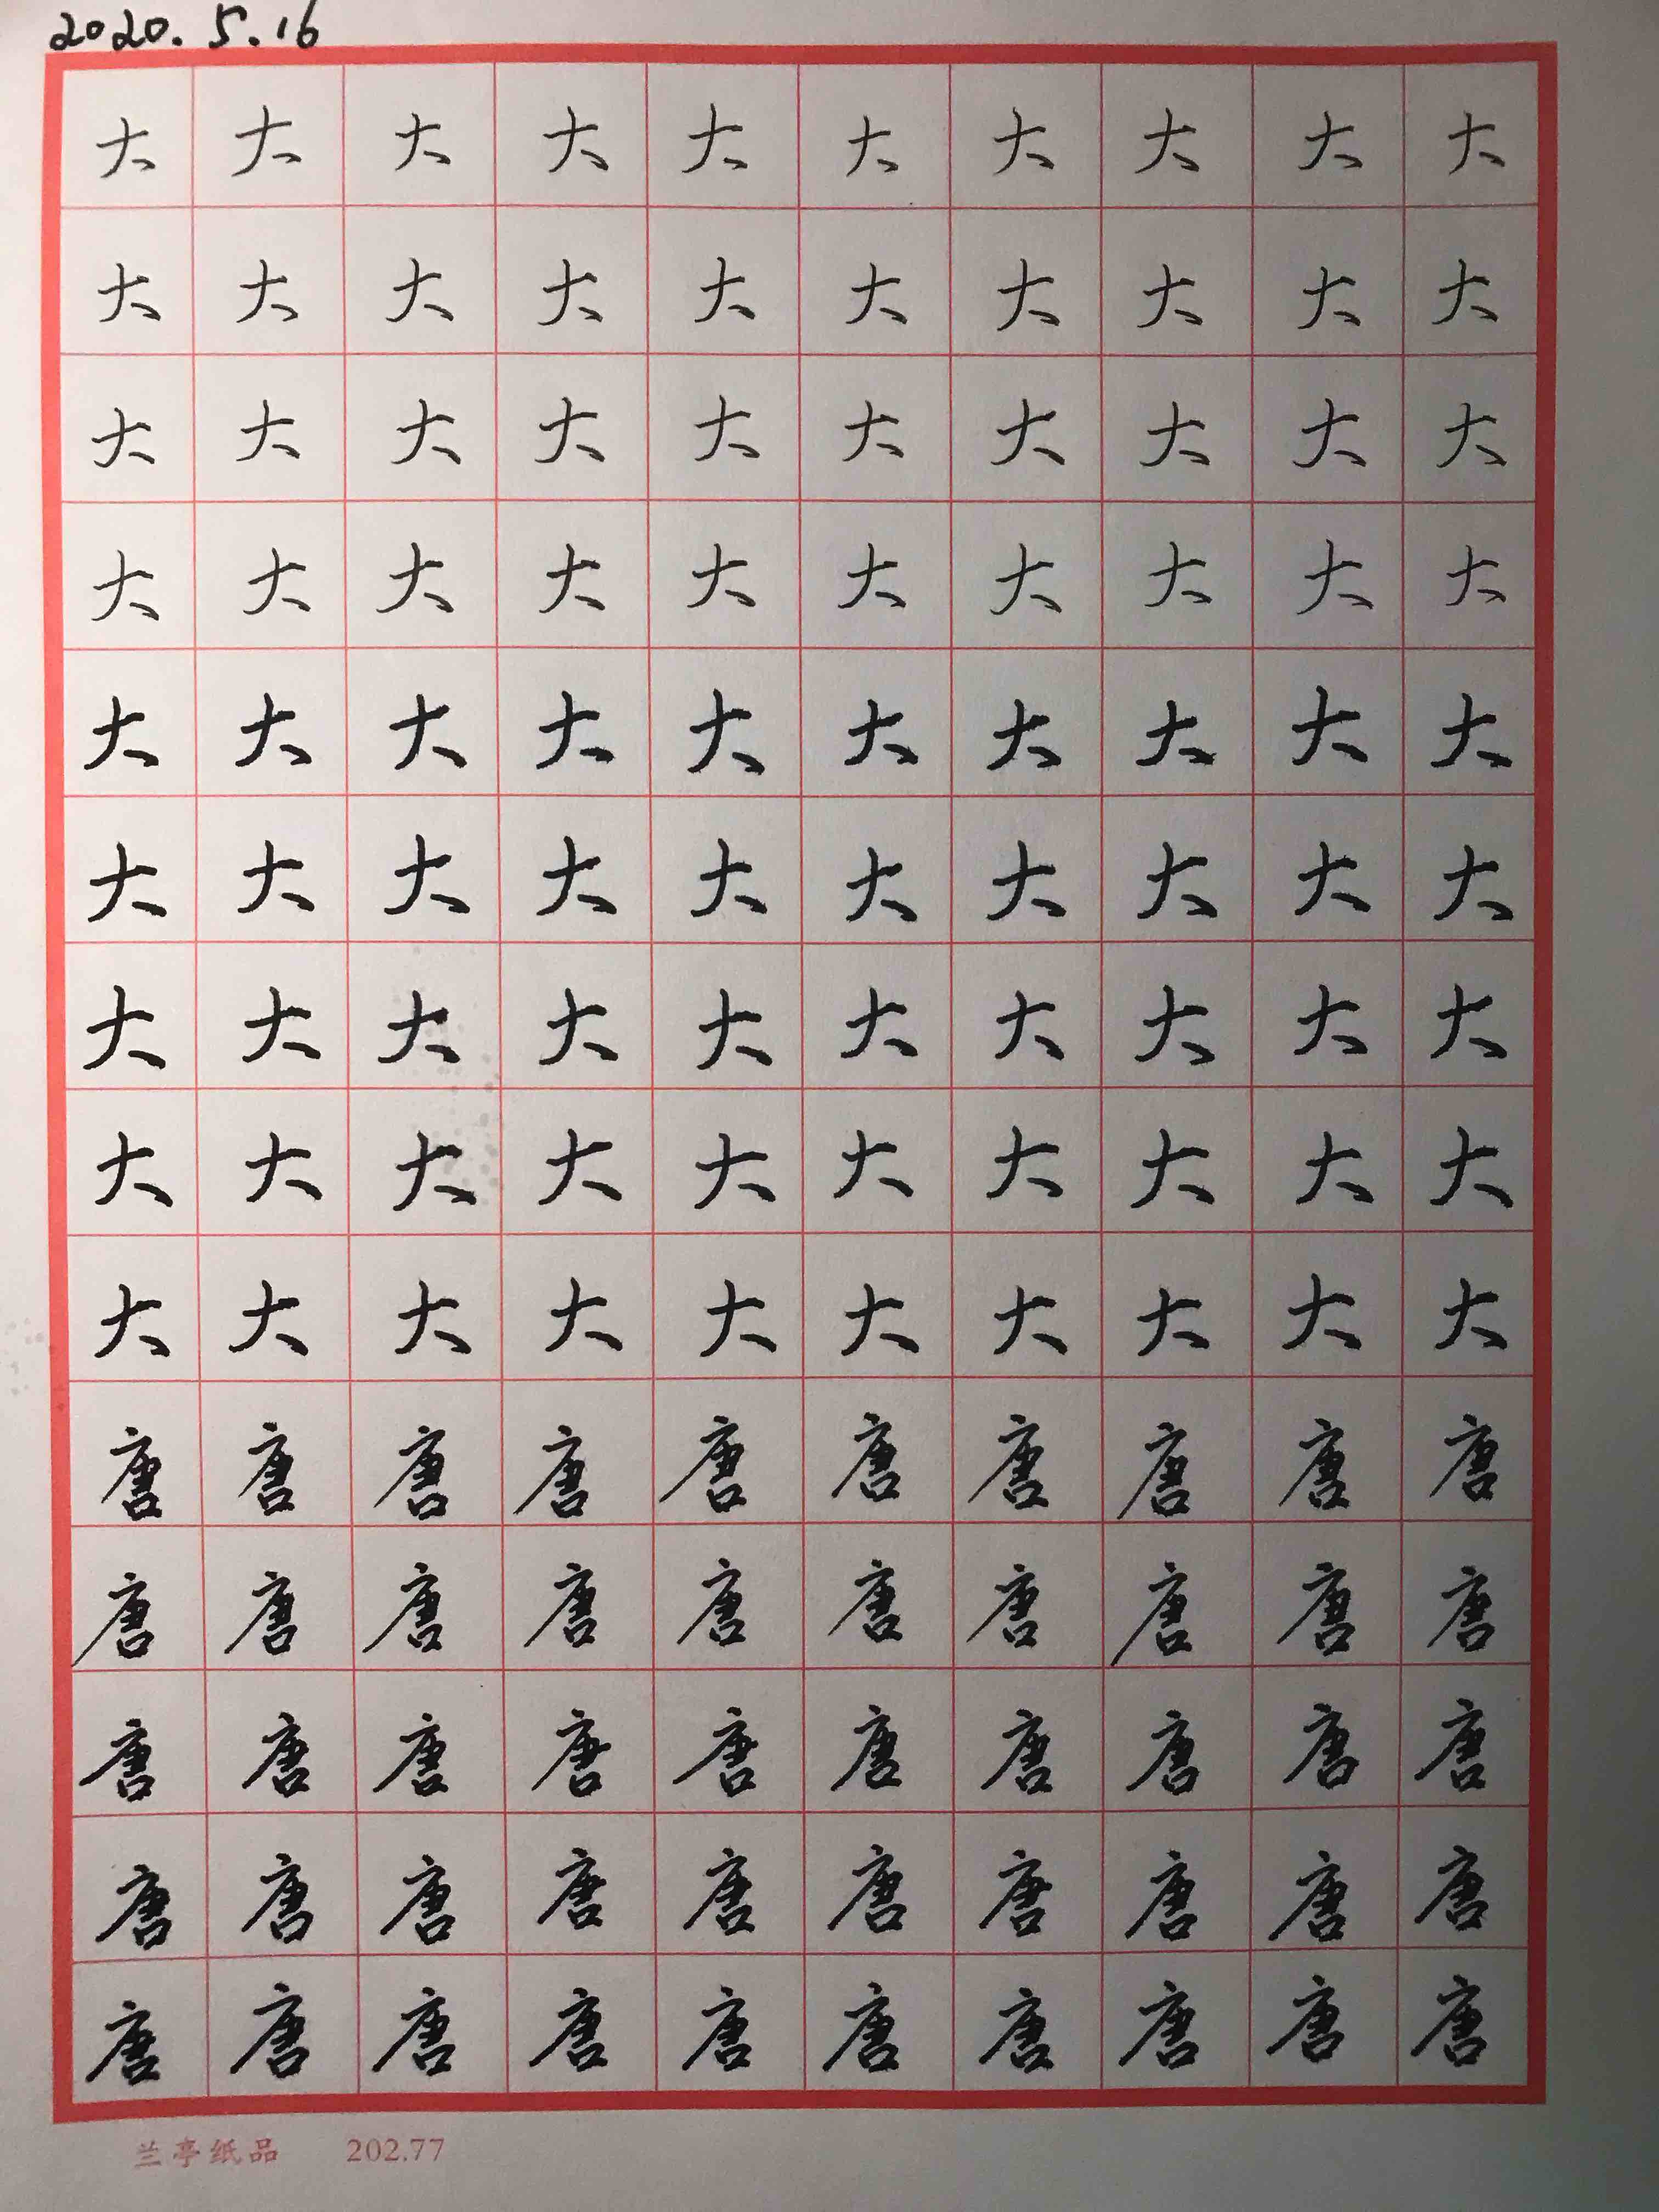 2020.5.16
大大大大大大大大大大
大大大大大大大大大大
大大大大大大大大大大
大大大大大大大大大大
大大大大大大大大大大
大大大大大大大大大大
大大大大大大大大大大
大大大大大大大大大大
大大大大大大大大大大
唐唐唐唐唐唐唐唐唐唐
唐唐唐唐唐唐唐唐唐唐
唐唐唐唐唐唐唐唐唐唐
唐唐唐唐唐唐唐唐唐唐
唐唐唐唐唐唐唐唐唐唐
兰亭纸品 202.77